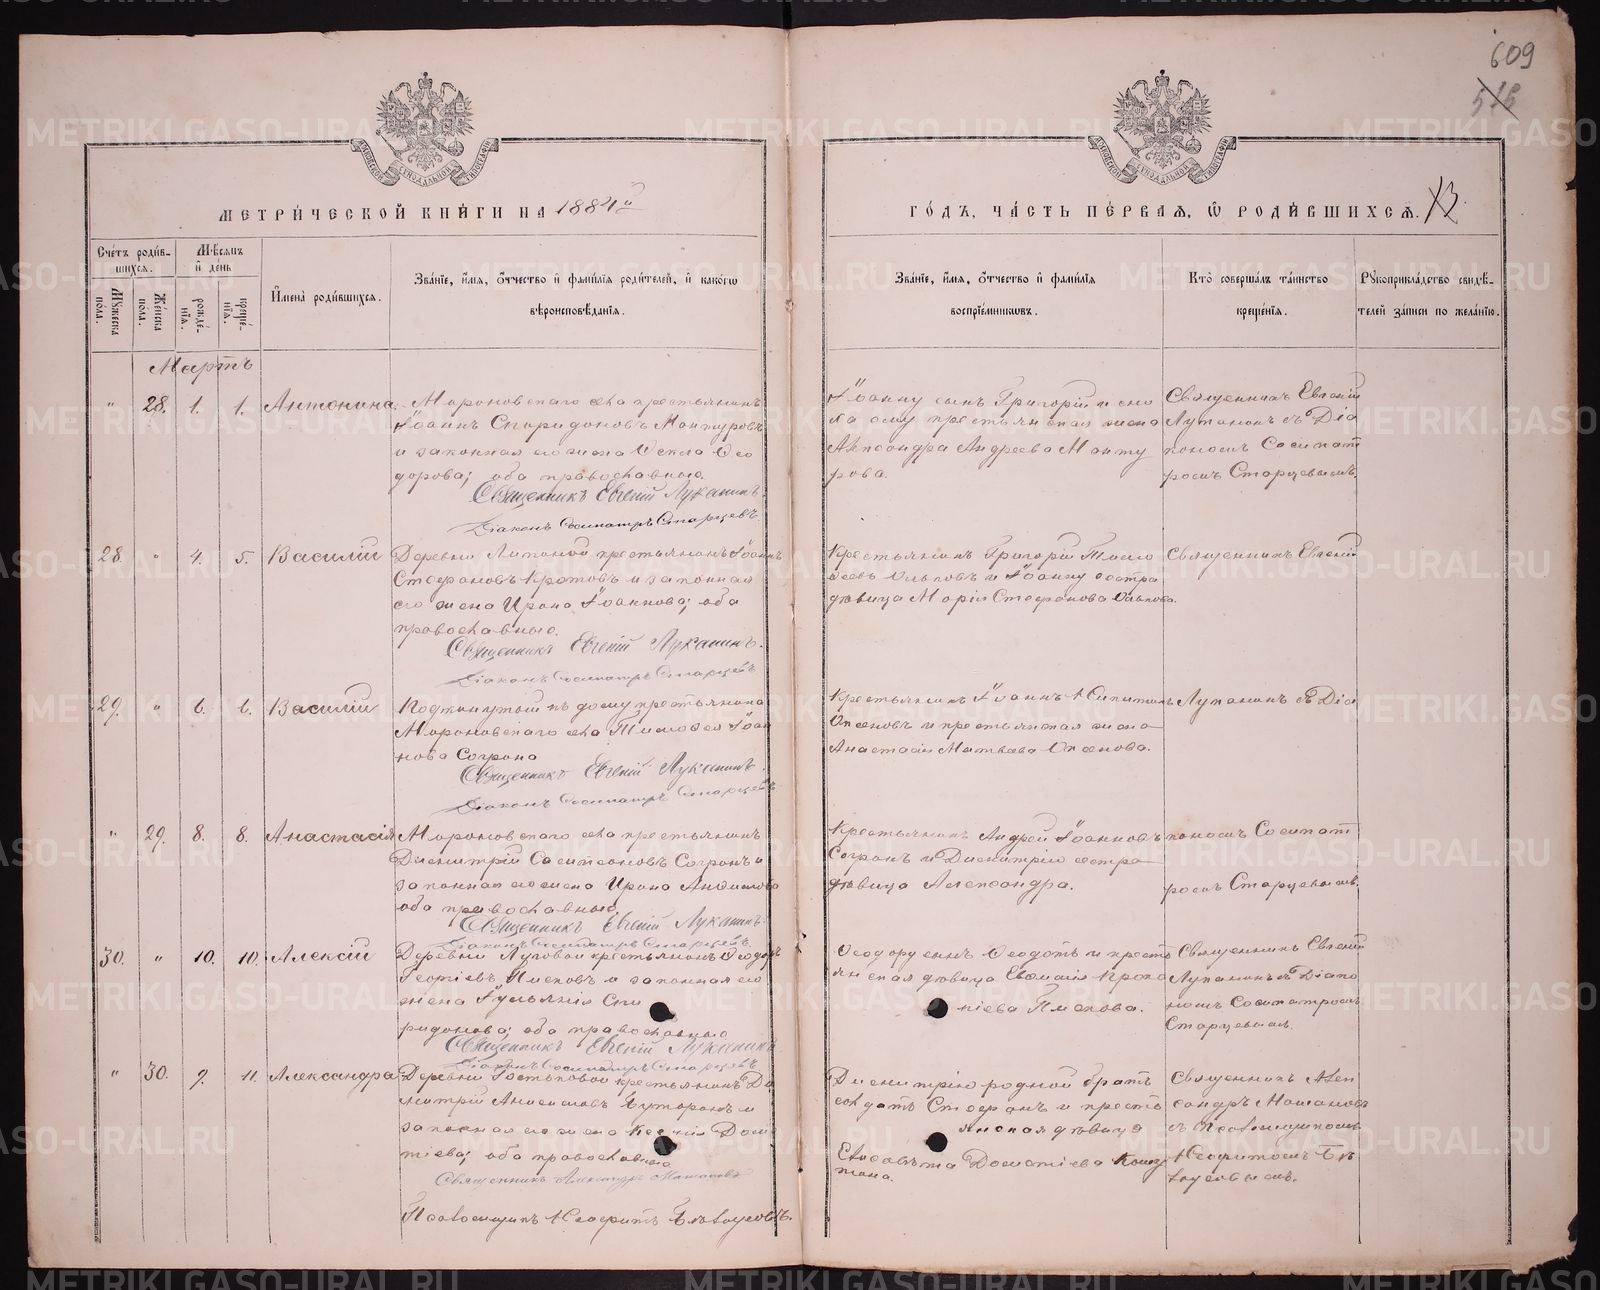 609
МЕТРИЧЕСКОЙ КНИГИ НА 1884й
ГОДЪ, ЧАСТЬ ПЕРВАЯ, Ѿ РОДИВШИХСЯ.
Счетъ родив-
шихся.
Мѣсяцъ
и день
Мужеска
пола.
Женска
пола.
рожде-
нїя.
креще-
нїя.
Имена родившихся.
Званїе, имя, отчество и фамилїя родителей, и какогѡ
вѣроисповѣданїя.
Званїе, имя, отчество и фамилїя
воспрїемниковъ.
Кто совершалъ таинство
крещенїя.
Рукоприкладство свидѣ-
телей записи по желанїю.
Мартъ
" 28. 1. 1. Антонина.
Мироновскаго села крестьянинъ
Іоаннъ Спиридоновъ Мантуровъ
и законная его жена Ѳекла Ѳео
дорова; оба православные.
Священникъ Евгеній Луканинъ.
Діаконъ Сосипатръ Старцевъ
Іоанну сынъ Григорій и сно
ха ему крестьянская жена
Александра Андреева Манту
рова.
Священникъ Евгеній
Луканинъ съ Діа
кономъ Сосипат
ромъ Старцевымъ.
28. " 4. 5. Василій
Деревни Липиной крестьянинъ Іоаннъ
Стефановъ Кротовъ и законная
его жена Ирина Іоаннова; оба
православные.
Священникъ Евгеній Луканинъ.
Діаконъ Сосипатръ Старцевъ
Крестьянинъ Григорій Тимо
ѳеевъ и Іоанну сестра
дѣвица Марія Стефанова
Священникъ Евгеній
29. " 6. 6. Василій
Подкинутый къ дому крестьянина
Мироновскаго села Тимоѳея Іоан
нова Согрина
Священникъ Евгеній Луканинъ.
Діаконъ Сосипатръ Старцевъ
Крестьянинъ Іоаннъ Никитинъ
и крестьянская жена
Анастасія Матвѣева
Луканинъ съ Діа
" 29. 8. 8. Анастасія
Мироновскаго села крестьянинъ
Димитрій Согринъ и
законная его жена Ирина
оба православные.
Священникъ Евгеній Луканинъ
Діаконъ Сосипатръ Старцевъ
Крестьянинъ Андрей Іоанновъ
Согринъ и Димитрію сестра
дѣвица Александра.
кономъ Сосипат
ромъ Старцевымъ.
30. " 10. 10. Алексій
Деревни Луговой крестьянинъ Ѳеодоръ
Георгіевъ и законная его
жена Іуліанія Спи
ридонова; оба православные
Священникъ Евгеній Луканинъ
Діаконъ Сосипатръ Старцевъ
Ѳеодору сынъ Ѳеодотъ и кресть
янская дѣвица Евѳимія Проко
піева
Священникъ Евгеній
Луканинъ съ Діако
номъ Сосипатромъ
Старцевымъ.
" 30. 9. 11. Александра
Деревни крестьянинъ Ди
митрій и
законная его жена Ксенія
оба православные
Священникъ Александръ
Псаломщикъ Неофитъ Бѣлоусовъ.
Димитрію родной братъ
солдатъ Стефанъ и кресть
янская дѣвица
Елисавета
Священникъ Алек
сандръ
съ Псаломщикомъ
Неофитомъ Бѣ
лоусовымъ.
METRIKI.GASO-URAL.RU